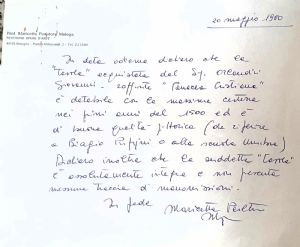 Prof. Maricetta Pieghini Malega
20 maggio 1980
In data odierna dichiaro che la
"tavola" acquistata dal Sg. Orlandini
Giovanni - raffig.te "
è databile con la massima certezza
nei primi anni del 1500 ed è
di buona qualità pittorica (da riferire
a Biagio Pupini o alla scuola Umbra)
Dichiaro inoltre che la suddetta "tavola"
è assolutamente integra e non presenta
nessuna traccia di manomissioni.
In fede